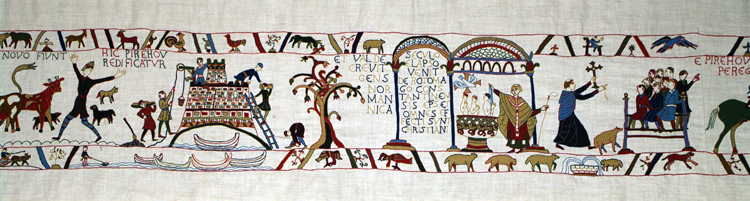 NOVO FIUNT
HIC PIREHOU
REDIFICATUR
ET VALDE
CREVIT
GENS
NOR
MAN
NICA
SECULO
ELIPSO
VENIT
DE ROTOMA
GO CONS
TANTINEN
SIS EPS ET
OMNES EF
FECTI SUNT
CHRISTIANI
E PIREHOU
PERE